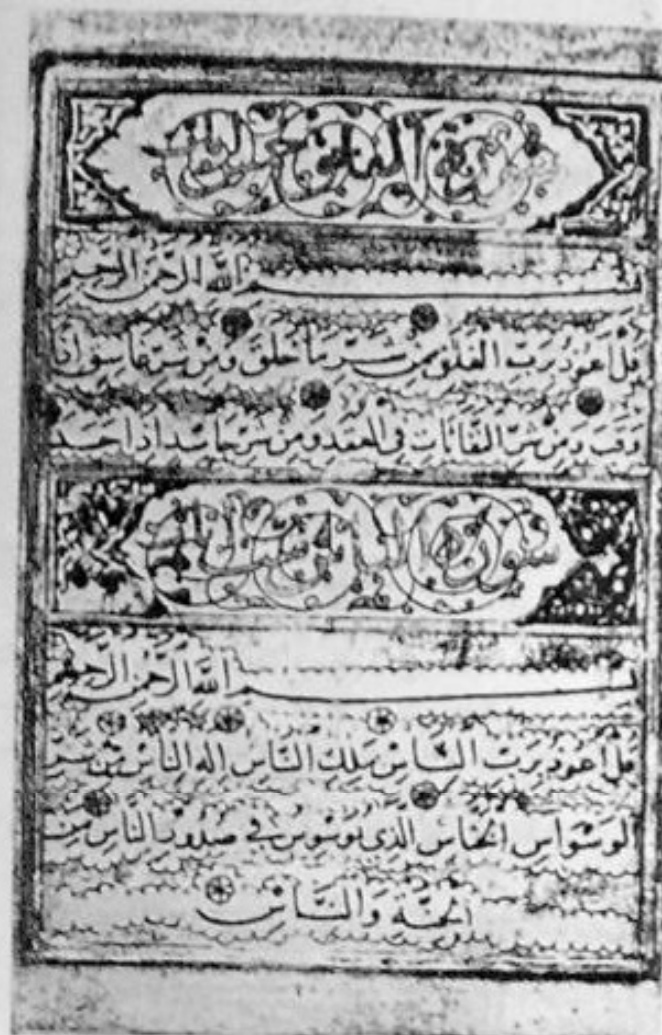 سورة الفلق خمس
بسم الله الرحمن الرحيم
قل اعوذ برب الفلق من شر ما خلق ومن شر غاسق اذا
وقب ومن شر النفاثات في العقد ومن شر حاسد اذا حسد
سورة الناس ست
بسم الله الرحمن الرحيم
قل اعوذ برب الناس ملك الناس اله الناس من شر
الوسواس الخناس الذي يوسوس في صدور الناس من
الجنة والناس